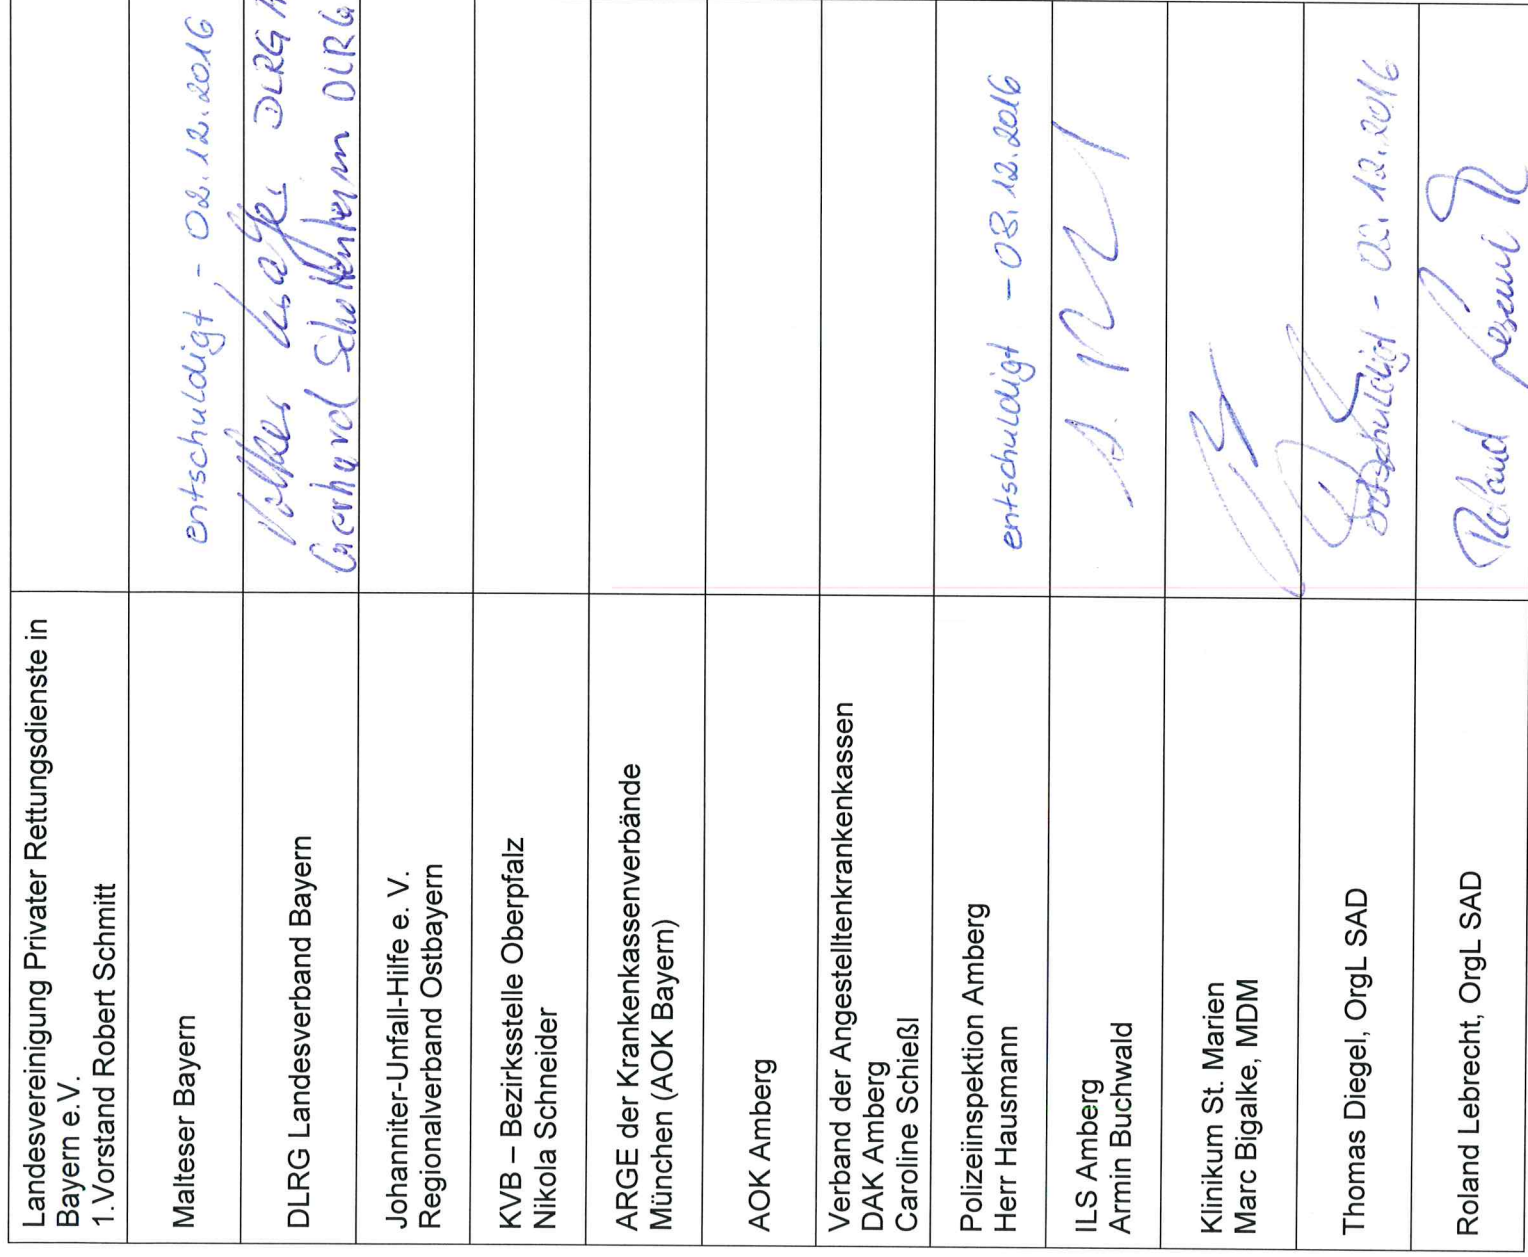 Landesvereinigung Privater Rettungsdienste in
Bayern e.V.
1.Vorstand Robert Schmitt
Malteser Bayern
entschuldigt - 02.12.2016
DLRG Landesverband Bayern
Volker DLRG
Gerhard Schottenhamm DLRG
Johanniter-Unfall-Hilfe e. V.
Regionalverband Ostbayern
KVB – Bezirksstelle Oberpfalz
Nikola Schneider
ARGE der Krankenkassenverbände
München (AOK Bayern)
AOK Amberg
Verband der Angestelltenkrankenkassen
DAK Amberg
Caroline Schießl
Polizeiinspektion Amberg
Herr Hausmann
entschuldigt - 08.12.2016
ILS Amberg
Armin Buchwald
Klinikum St. Marien
Marc Bigalke, MDM
Thomas Diegel, OrgL SAD
entschuldigt - 02.12.2016
Roland Lebrecht, OrgL SAD
Roland